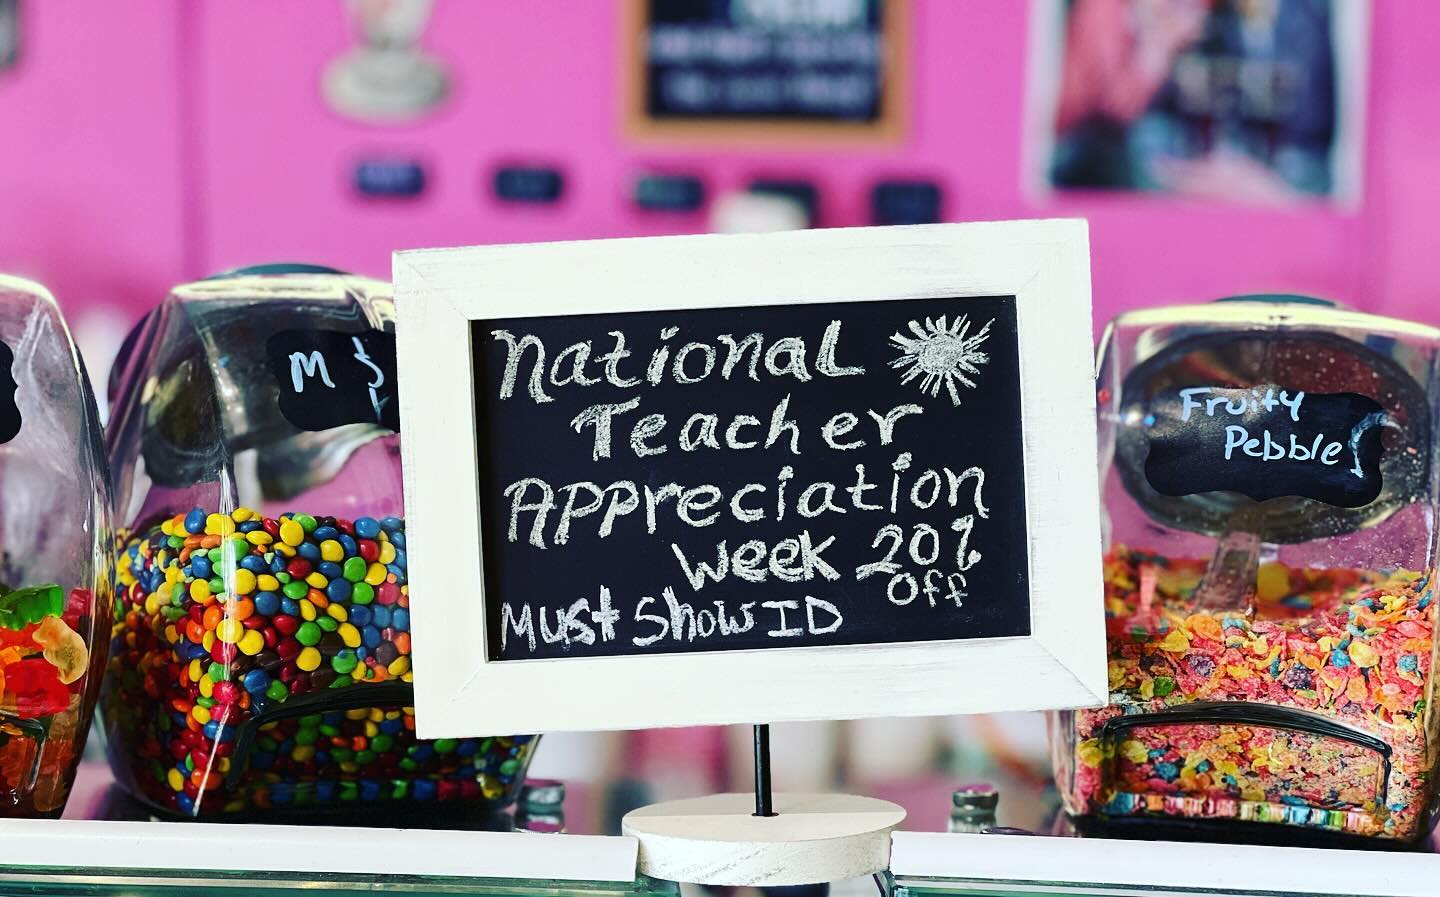 National
Teacher
Appreciation
Week 20%
Off
Must Show ID
M
Fruity
Pebbles